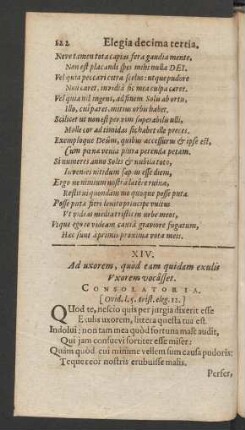 122 Elegia decima tertia,
Neve tamen tota capias fera gaudia mente,
Non est placandi spes mihi nulla DEI.
Vel quia peccavi citra scelus: utque pudore
Non caret, invidiâ sic mea culpa caret.
Vel quia nil ingens, ad finem Solis ab ortu,
Illo, cui paret, mitius orbis habet.
Scilicet ut non est per vim superabilis ulli,
Molle cor ad timidas sic habet ille preces.
Exemploque Deûm, quibus accessurus & ipse est,
Cum pœnæ veniâ plura petenda petam.
Si numeres anno Soles & nubila toto,
Invenies nitidum sæpius esse diem,
Ergo ne nimium nostrâ lætere ruinâ,
Restitui quondam me quoque posse puta.
Posse puta fieri lenito principe vultus
Ut videas mediâ tristis in urbe meos,
Utque ego te videam causâ graviore fugatum,
Hæc sunt à primis proxima vota meis.
XIV.
Ad uxorem, quòd eam quidam exulis
Uxorem vocâsset.
CONSOLATORIA.
[Ovid. l. 5. trist. eleg. 12.]
QUod te, nescio quis per jurgia dixerit esse
Exulis uxorem, littera questa tua est.
Indolui: non tam mea quòd fortuna malè audit,
Qui jam consuevi fortiter esse miser:
Quàm quòd cui minimè vellem sum causa pudoris:
Teque reor nostris erubuisse malis.
Perfer,